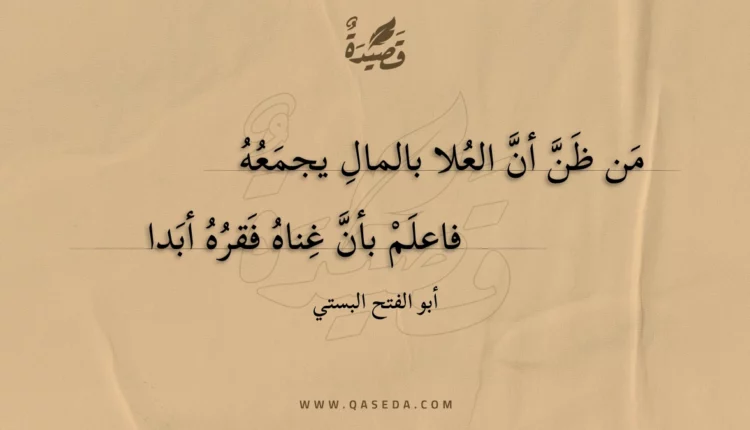 قَصِيْدَةٌ
مَن ظَنَّ أنَّ العُلا بالمالِ يجمَعُهُ
فاعلَمْ بأنَّ غِناهُ فَقرُهُ أبَدا
أبو الفتح البستي
WWW.QASEDA.COM